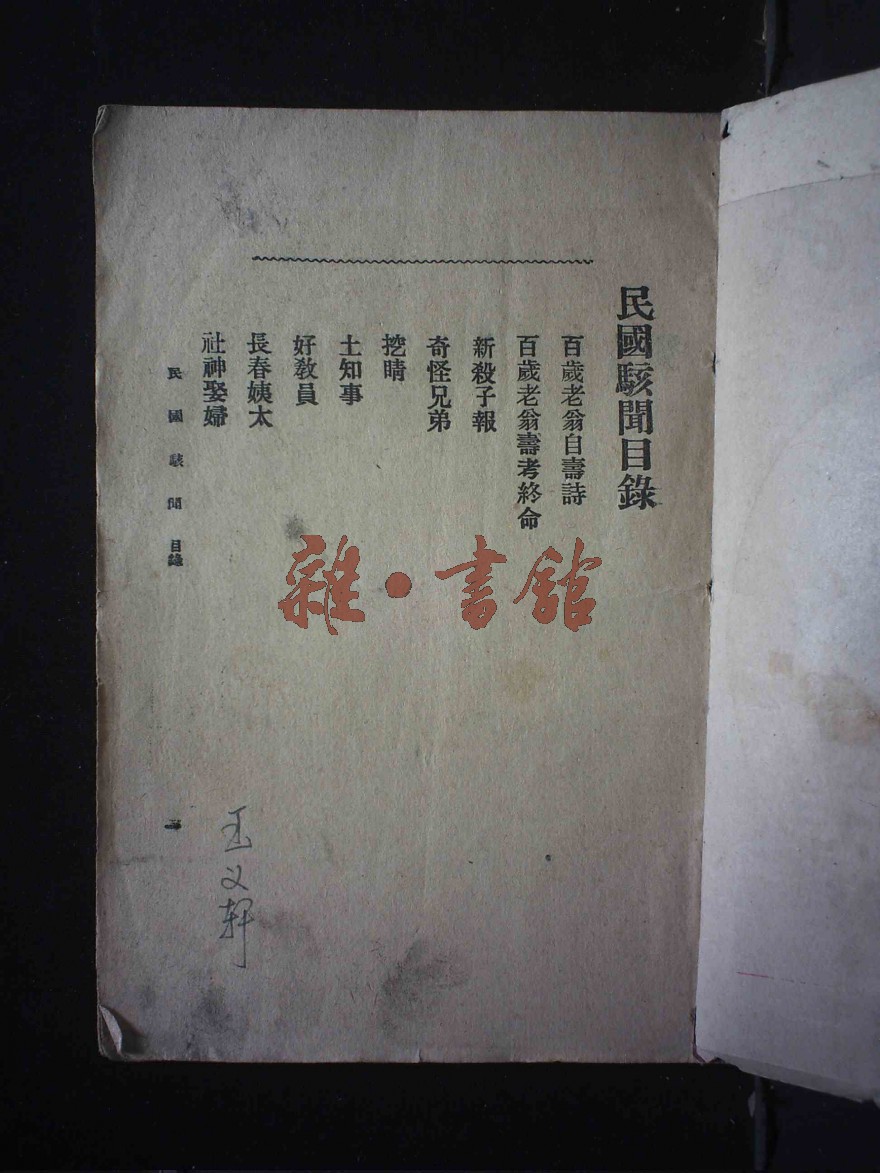 民國駭聞目錄
百歲老翁自壽詩
百歲老翁壽考終命
新殺子報
奇怪兄弟
挖睛
土知事
好教員
長春姨太
社神娶婦
民國駭聞 目錄
雜·書館
王文軒